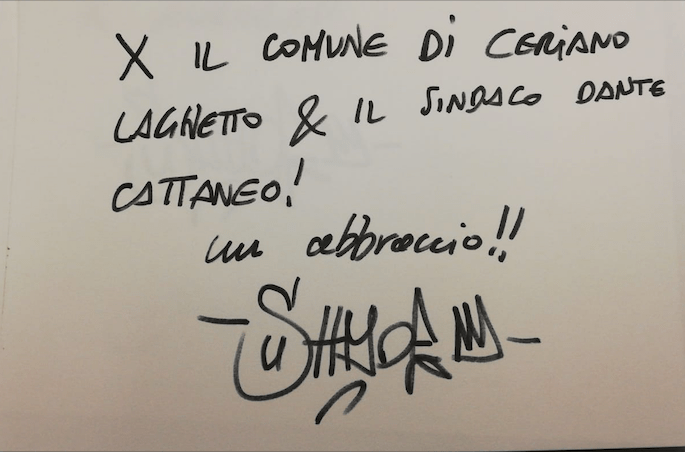 X IL COMUNE DI CERIANO
LAGHETTO & IL SINDACO DANTE
CATTANEO!
un abbraccio!!